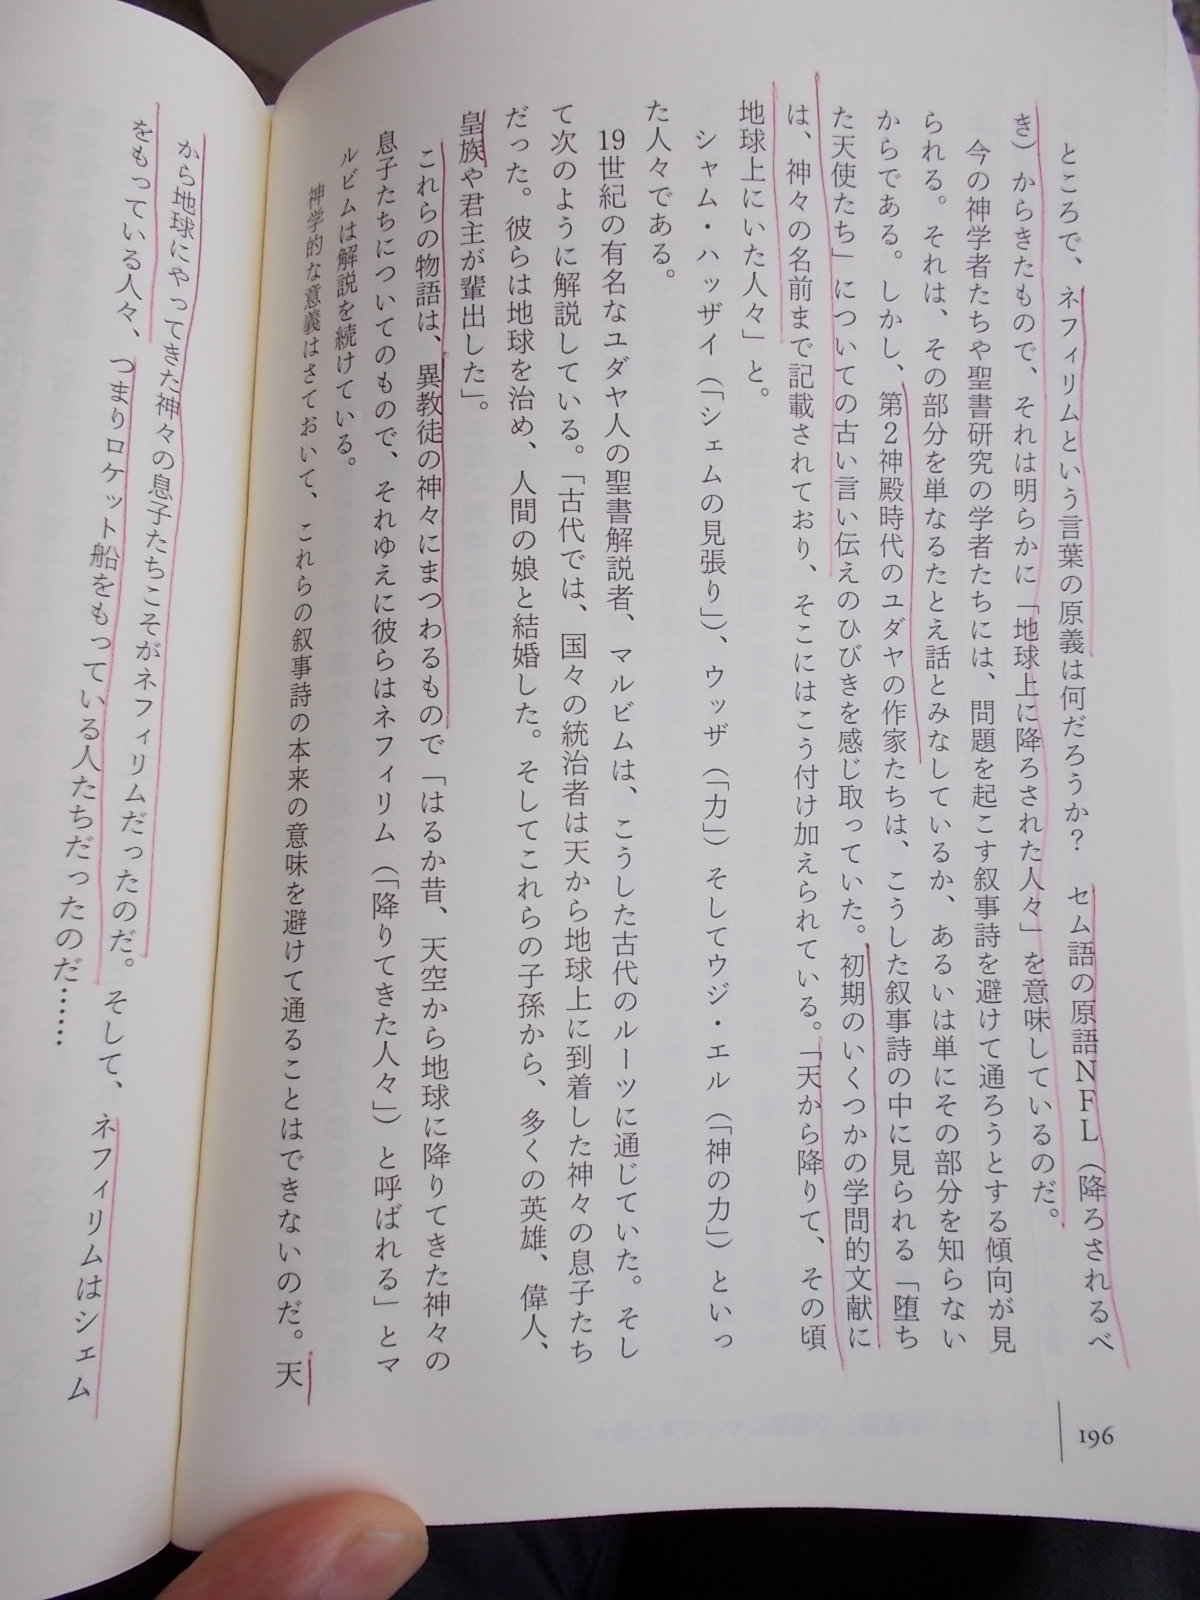 ところで、ネフィリムという言葉の原義は何だろうか？　セム語の原語NFL（降ろされるべ
き）からきたもので、それは明らかに「地球上に降ろされた人々」を意味しているのだ。
今の神学者たちや聖書研究の学者たちには、問題を起こす叙事詩を避けて通ろうとする傾向が見
られる。それは、その部分を単なるたとえ話とみなしているか、あるいは単にその部分を知らない
からである。しかし、第2神殿時代のユダヤの作家たちは、こうした叙事詩の中に見られる「堕ち
た天使たち」についての古い言い伝えのひびきを感じ取っていた。初期のいくつかの学問的文献に
は、神々の名前まで記載されており、そこにはこう付け加えられている。「天から降りて、その頃
地球上にいた人々」と。
シャム・ハッザイ（「シェムの見張り」）、ウッザ（「力」）そしてウジ・エル（「神の力」）といっ
た人々である。
19世紀の有名なユダヤ人の聖書解説者、マルビムは、こうした古代のルーツに通じていた。そし
て次のように解説している。「古代では、国々の統治者は天から地球上に到着した神々の息子たち
だった。彼らは地球を治め、人間の娘と結婚した。そしてこれらの子孫から、多くの英雄、偉人、
皇族や君主が輩出した」。
これらの物語は、異教徒の神々にまつわるもので「はるか昔、天空から地球に降りてきた神々の
息子たちについてのもので、それゆえに彼らはネフィリム（「降りてきた人々」）と呼ばれる」とマ
ルビムは解説を続けている。
神学的な意義はさておいて、これらの叙事詩の本来の意味を避けて通ることはできないのだ。天
196
から地球にやってきた神々の息子たちこそがネフィリムだったのだ。そして、ネフィリムはシェム
をもっている人々、つまりロケット船をもっている人たちだったのだ……